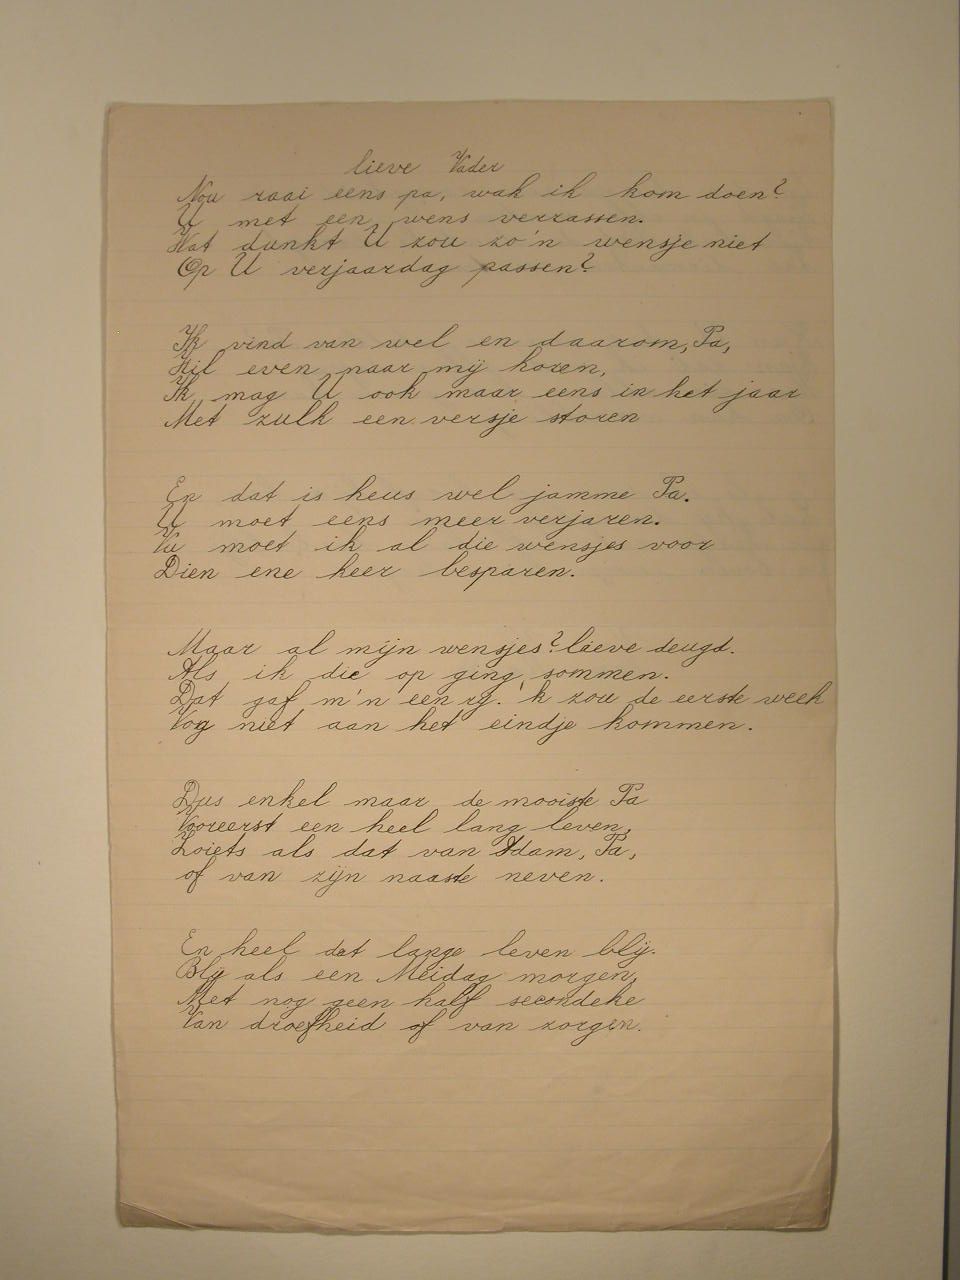 lieve Vader
Nou raai eens pa, wak ik kom doen?
U met een wens verrassen.
Wat dunkt U zou zo'n wensje niet
Op U verjaardag passen?
Ik vind van wel en daarom, Pa,
Wil even naar mij horen,
Ik mag U ook maar eens in het jaar
Met zulk een versje storen
En dat is heus wel jamme Pa.
U moet eens meer verjaren.
Nu moet ik al die wensjes voor
Dien ene keer besparen.
Maar al mijn wensjes? lieve deugd.
Als ik die op ging sommen.
Dat gaf m'n een rij. 'k zou de eerste week
Nog niet aan het eindje kommen.
Dus enkel maar de mooiste Pa
Vooreerst een heel lang leven,
Zoiets als dat van Adam, Pa,
of van zijn naaste neven.
En heel dat lange leven blij.
Blij als een Meidag morgen,
Met nog geen half secondeke
Van droefheid of van zorgen.